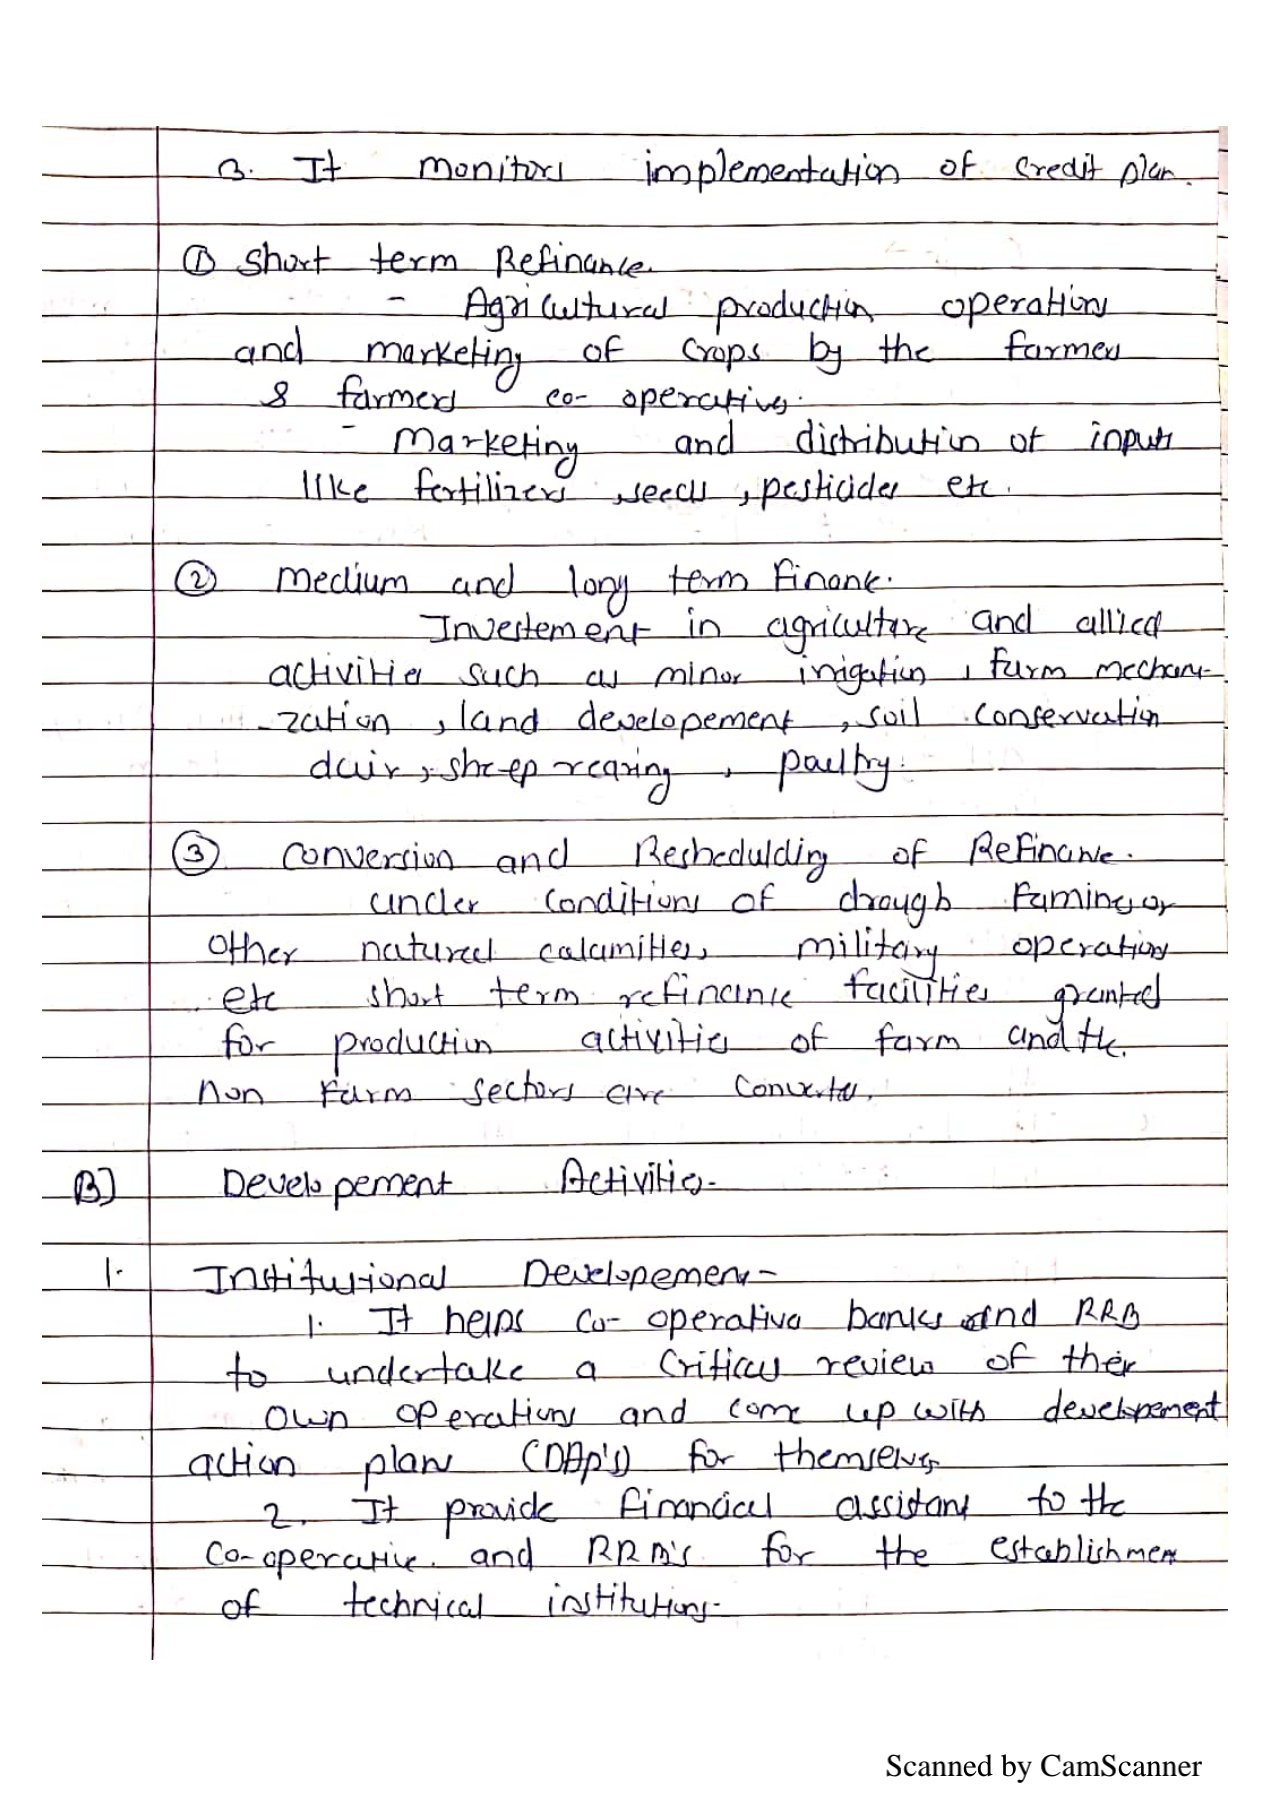 3. It monitors implementation of credit plan.
① Short term Refinance.
- Agricultural production operations
and marketing of crops by the farmers
& farmers co-operatives.
- Marketing and distribution of inputs
like fertilizers, seeds, pesticides etc.
② Medium and long term Finance.
Investement in agriculture and allied
activities such as minor irrigation, farm mechani-
-zation, land developement, soil conservation
dair, sheep rearing, paultry.
③ Conversion and Reshedulding of Refinance.
under conditions of drough Famines or
other natural calamities, military operations
etc short term refinance facilities granted
for production activities of farm and the
non farm sectors are converted.
B] Developement Activities-
1. Institutional Developement-
1. It helps co-operative banks and RRB
to undertake a critical review of their
own operations and come up with developement
action plans (DAP's) for themselves
2. It provide financial assistans to the
co-operative. and RRB's for the establishment
of technical institutions-
Scanned by CamScanner